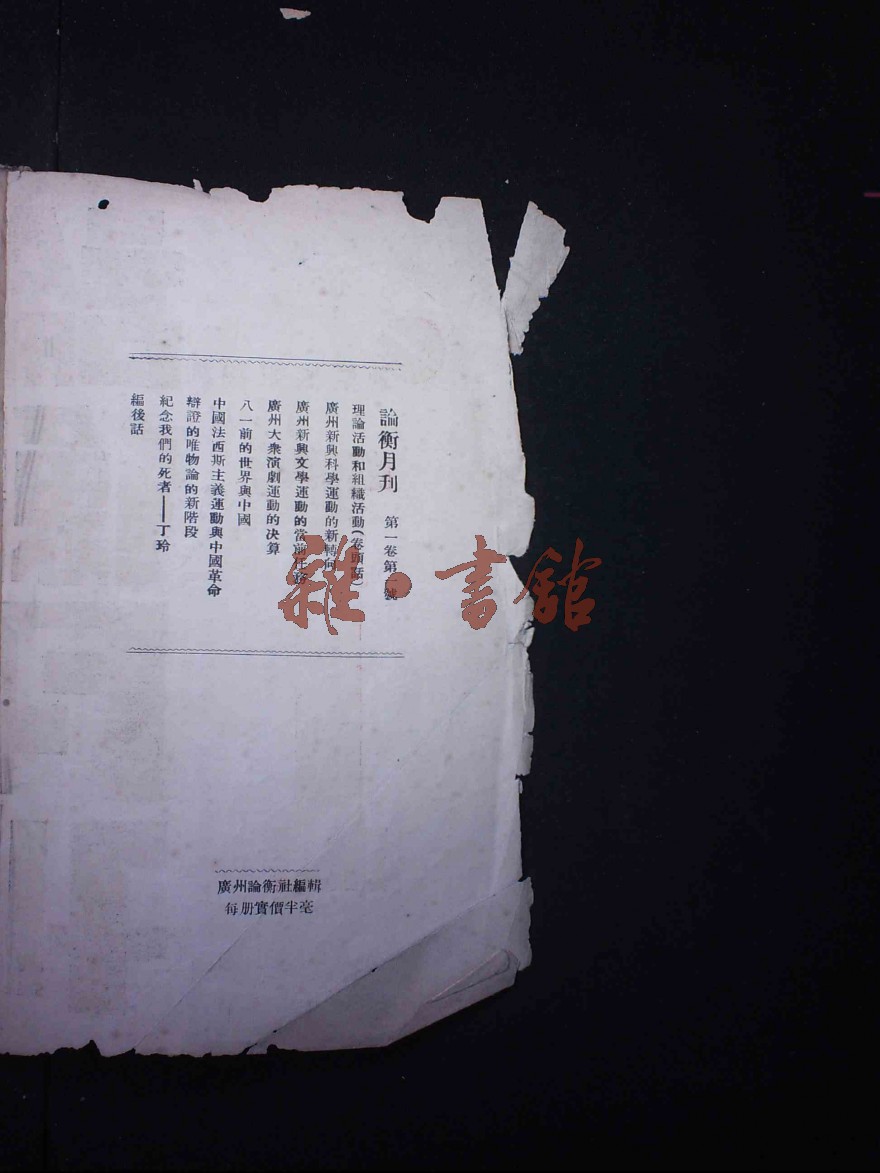 論衡月刊 第一卷第一號
理論活動和組織活動(卷頭話)
廣州新興科學運動的新轉向
廣州新興文學運動的當前任務
廣州大衆演劇運動的決算
八一前的世界與中國
中國法西斯主義運動與中國革命
辯證的唯物論的新階段
紀念我們的死者——丁玲
編後話
廣州論衡社編輯
每册實價半毫
雜·書館